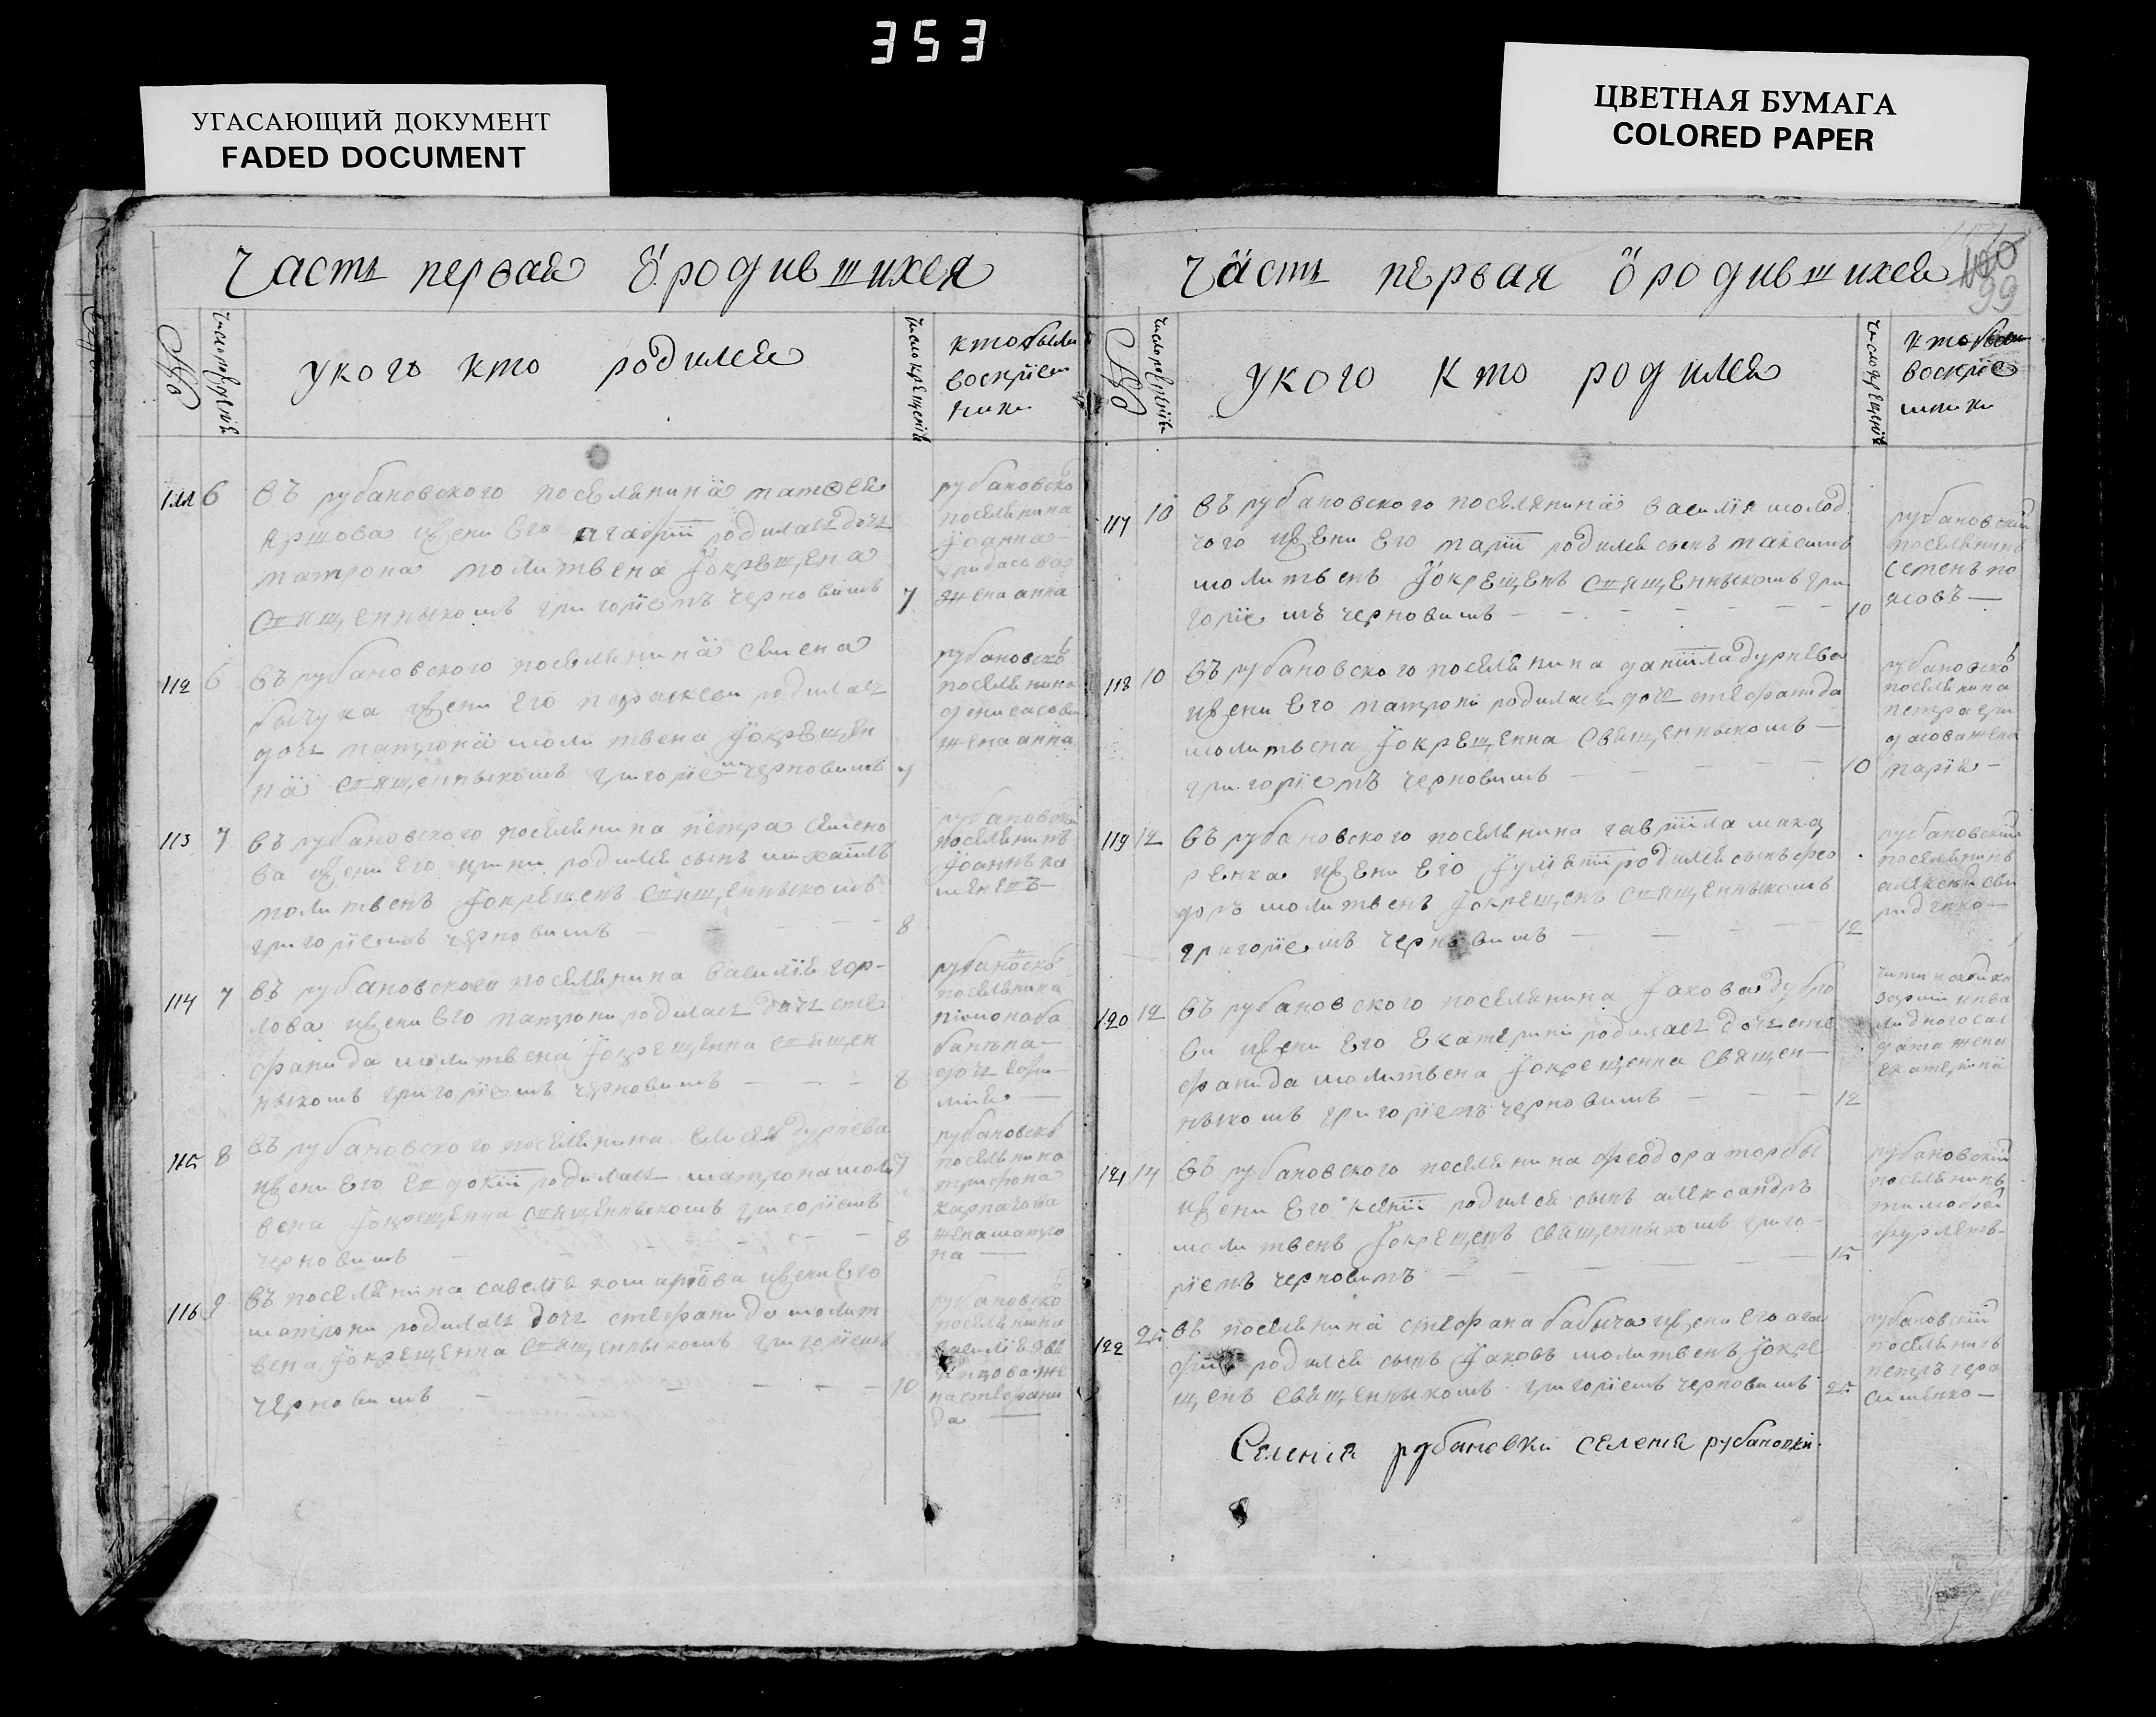 353
УГАСАЮЩИЙ ДОКУМЕНТ
FADED DOCUMENT
ЦВЕТНАЯ БУМАГА
COLORED PAPER
Часть первая ö родившихся
№
число рожденія
у кого кто родился
число крещенія
кто были
воспріем
ники
111 6 въ рубановского поселянина матѳея
яршова и жени его агафіи родилась дочь
матрона молитвена і окрещена
священныкомъ григоріемъ черновимъ 7
рубановско
поселянина
іоанна
жена анна
112 6 въ рубановского поселянина симена
бычука и жени его параскеви родилась
дочь матрона молитвена і окрещен
на священныкомъ григоріемъ черновимъ 7
рубановско
поселянина
жена анна
113 7 въ рубановского поселянина петра симено
ва и жени его ирини родился сынъ михаилъ
молитвенъ і окрещенъ священныкомъ
григоріемъ черновимъ 8
рубановскій
поселянинъ
іоаннъ
114 7 въ рубановского поселянина василія гор-
лова и жени его матрони родилась дочь сте
фанида молитвена і окрещенна священ
ныкомъ григоріемъ черновимъ 8
рубановско
поселянина
дочь
115 8 въ рубановского поселянина елисея дурнева
и жени его евдокіи родилась матрона моли
вена і окрещенна священныкомъ григоріемъ
черновимъ 8
рубановско
поселянина
трифона
карпачова
жена матро
на
116 9 въ поселянина савелія комарова и жени его
матрони родилась дочь стефанида молит
вена і окрещенна священныкомъ григоріемъ
черновимъ 10
рубановско
поселянина
василія
на стефани
да
Часть первая ö родившихся
100
99
№
число рожденія
у кого кто родился
число крещенія
кто были
воспріе
мники
117 10 въ рубановского поселянина василія молод
чого и жени его маріи родился сынъ максимъ
молитвенъ і окрещенъ священныкомъ гри
горіемъ черновимъ 10
рубановскій
поселянинъ
семенъ по
118 10 въ рубановского поселянина даніила дурнева
и жени его матрони родилась дочь стефанида
молитвена і окрещенна священныкомъ
григоріемъ черновимъ 10
рубановско
поселянина
петра
жена
марія
119 12 въ рубановского поселянина гавріила мака
ренка и жени его іуліаніи родился сынъ фео
доръ молитвенъ і окрещенъ священныкомъ
григоріемъ черновимъ 12
рубановскій
поселянинъ
алексей сви
риденко
120 12 въ рубановского поселянина іакова дубро
ви и жени его екатерини родилась дочь сте
фанида молитвена і окрещенна священ
ныкомъ григоріемъ черновимъ 12
инва
лидного сал
дата жена
екатерина
121 14 въ рубановского поселянина феодора торбы
и жени его ксеніи родился сынъ александръ
молитвенъ і окрещенъ священныкомъ григо
ріемъ черновимъ 15
рубановскій
поселянинъ
тимофей
122 25 въ поселянина стефана бабыча и жени его ага
фіи родился сынъ іаковъ молитвенъ і окре
щенъ священныкомъ григоріемъ черновимъ 25
рубановскій
поселянинъ
петръ гера
сименко
Селенія рубановки селенія рубановки